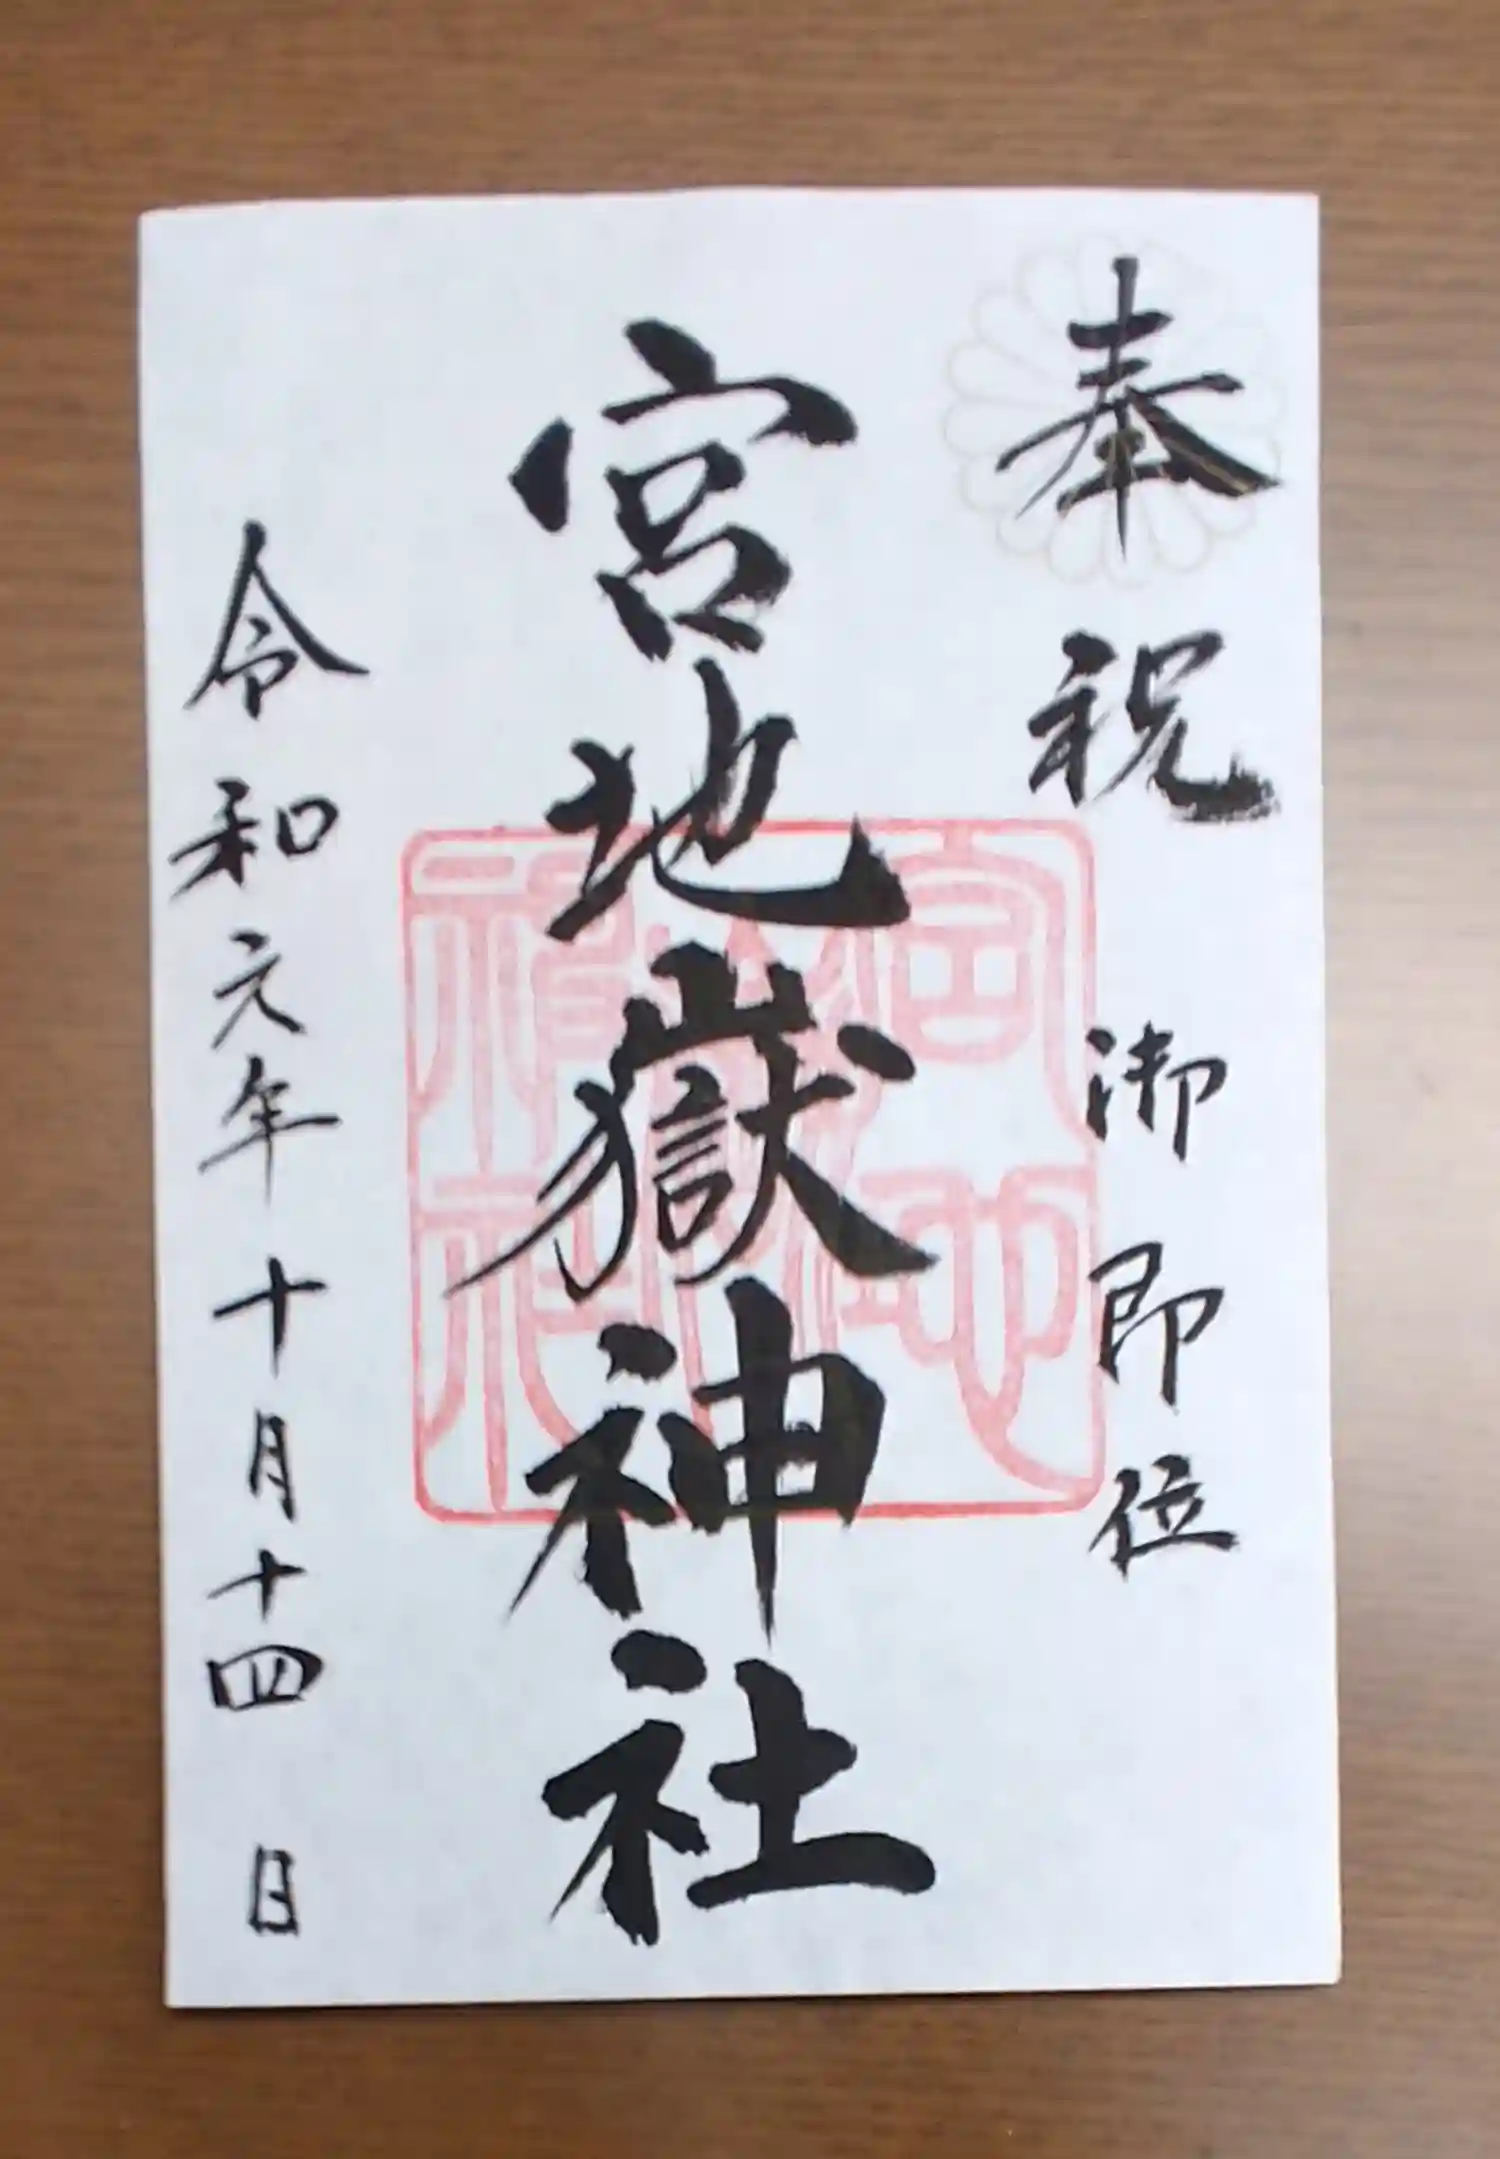 奉祝 御即位
宮地嶽神社
令和元年十月十四日
宮地嶽神社